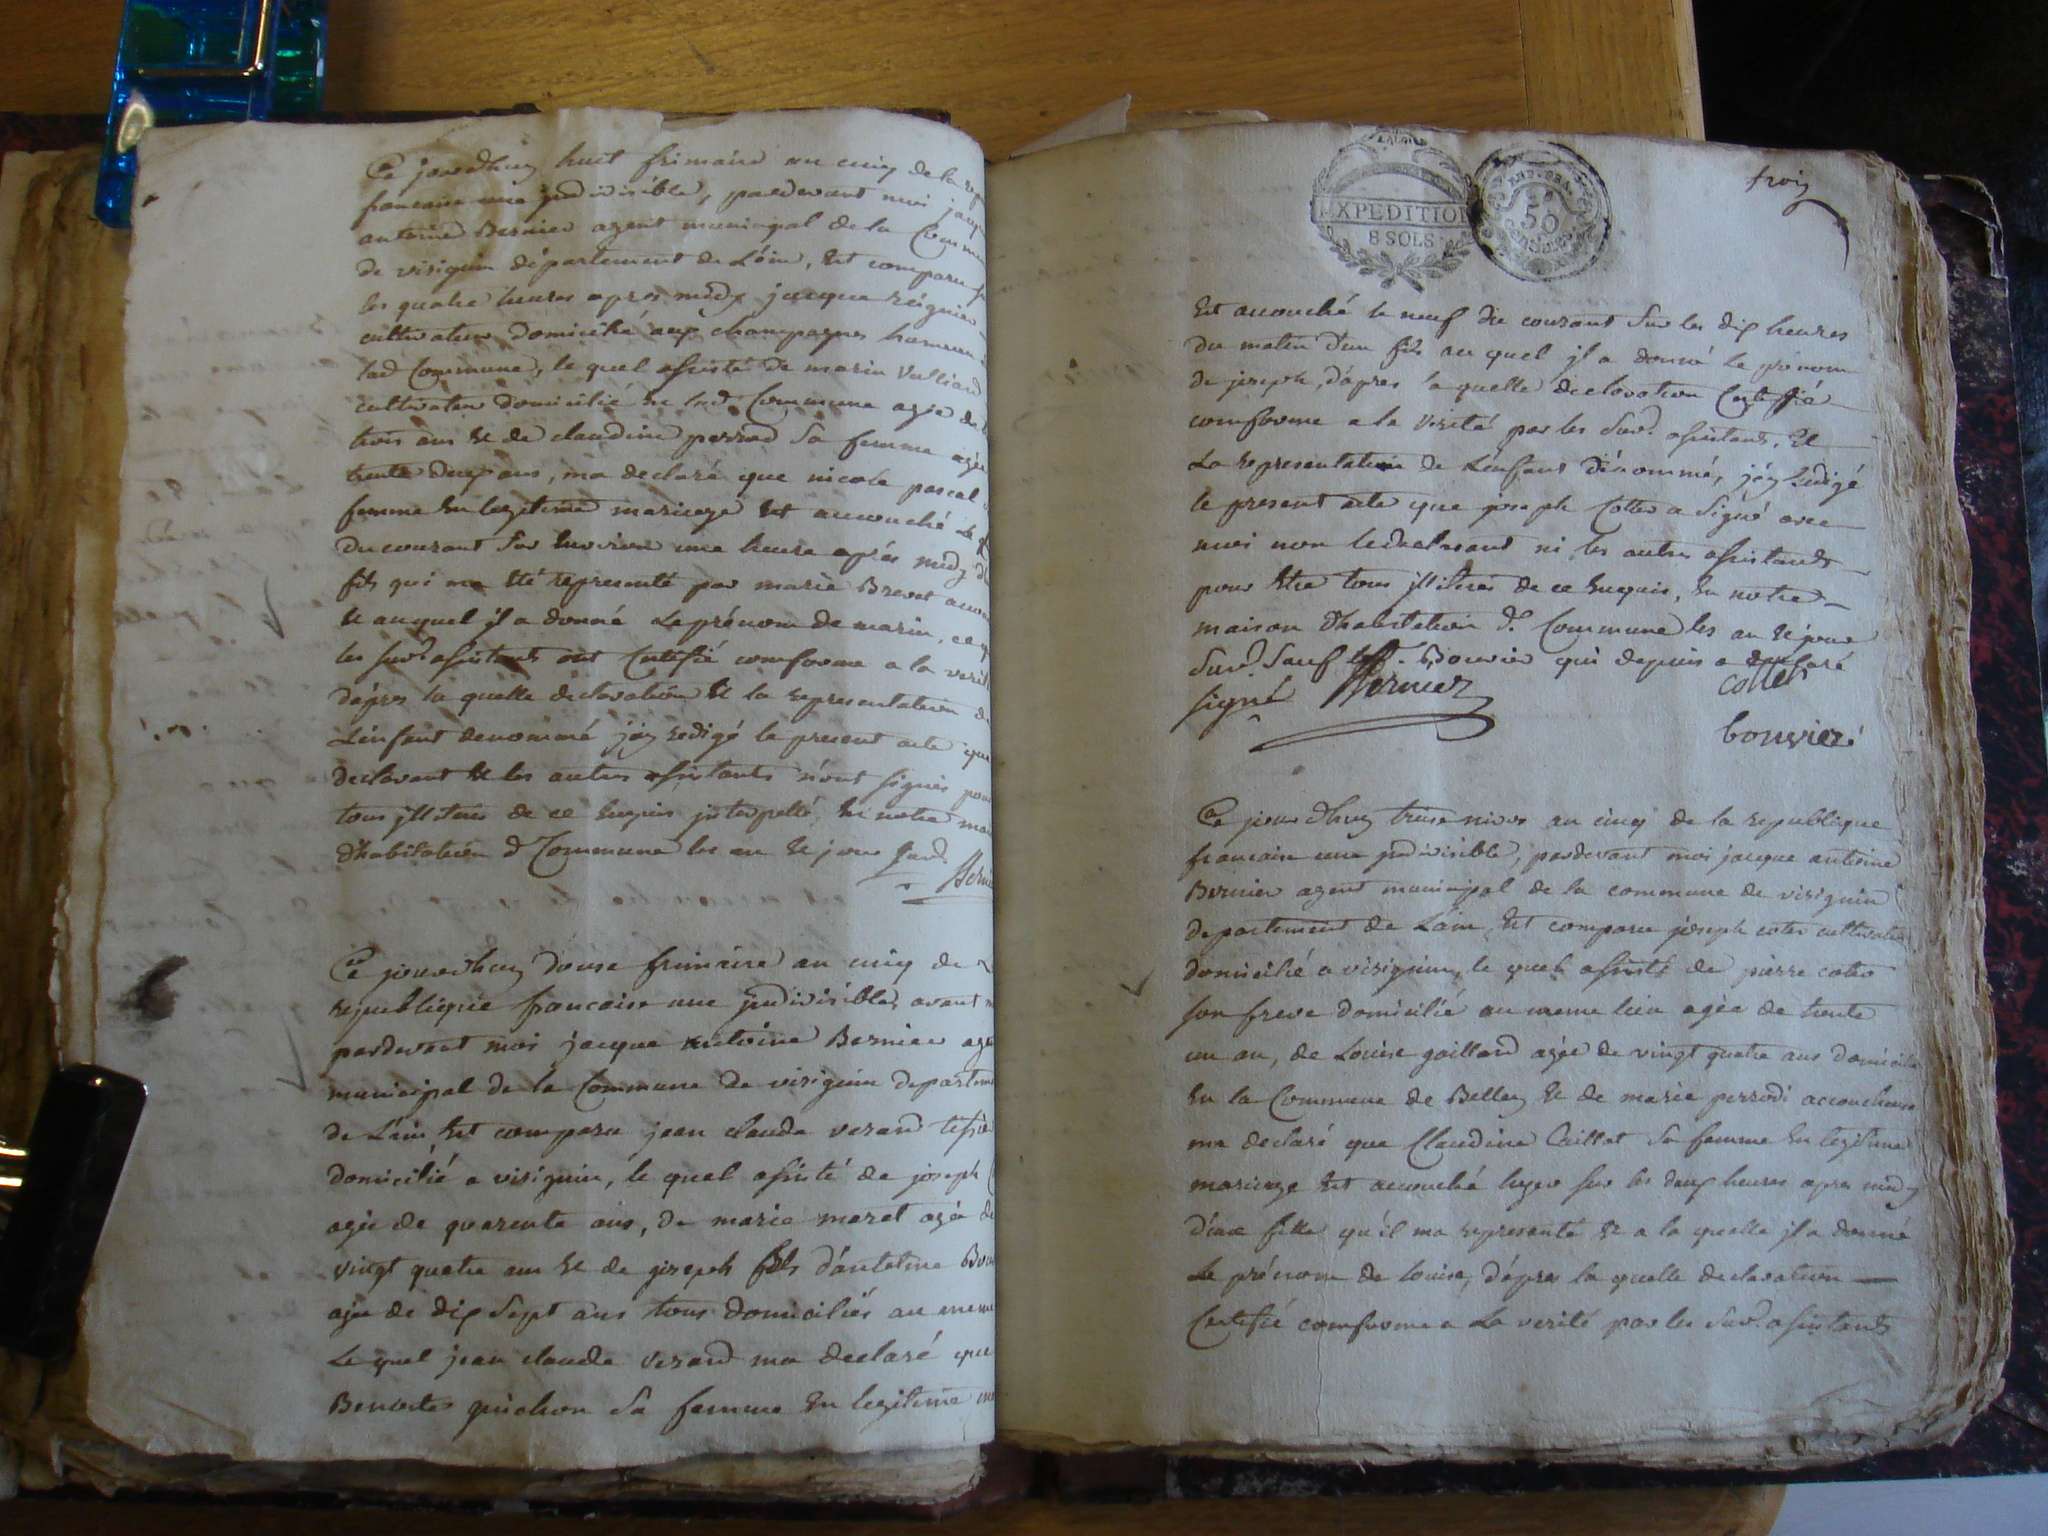 Ce jourdhuy huit frimaire an cinq de la
francaise une jndivisible, pardevant moi
antoine Bernier agent municipal de la Commune
de virignin département de L'ain, Est comparu
les quatre heures apres midy jacque reignier
cultivateur domicilié aux champagnes hameau
lad Commune, le quel assisté de marin Vulliard
cultivateur domicilié en lad. Commune agée de
trois ans Et de claudine perrod sa femme agée
trente deux ans, ma declaré que nicole pascal
femme En legitime mariage Est accouché le
du courant Sur Environ une heure après midy
fils qui ma Eté representé par marie Brevet
Et auquel jl a donné Le prénom de marin, ce
les surd. assistants ont Certifié comforme a la verité
daprès la quelle déclaration Et la representation
L'enfant denommé j'ay redigé le present acte que
declarant Et les autres assistants n'ont signés pour
tous jllitérés de ce Enquis jnterpellé, En notre
d'habitation de Commune les an Et jour surd.
Bernier
Ce jourdhuy douse frimaire an cinq de
republique francaise une jndivisible, avant
pardevant moi jacque antoine Bernier
municipal de la Commune de virignin
de L'ain Est comparu jean claude verard
domicilié a virignin, le quel assisté de joseph
agée de quarente ans, de marie maret agée de
vingt quatre ans Et de joseph fils d'antelme
agée de dix sept ans tous domiciliés au meme
Le quel jean claude verard ma declaré que
Benoite guichon sa femme En legitime
EXPEDITION
8 SOLS
50
trois
Est accouché le neuf du courant Sur les dix heures
du matin d'un fils au quel jl a donné le prénom
de joseph, d'apres la quelle declaration Certifié
comforme a la Verité par les surd. assistants, Et
La representation de L'enfant dénommé, j'ay Redigé
le present acte que joseph Collet a signé avec
moi non le declarant ni les autres assistants
pour Etre tous jllitérés de ce Enquis, En notre
maison d'habitation de Commune les an Et jour
surd. Sauf Bouvier qui depuis a declaré
signé Bernier collet
bouvier
Ce jourdhuy treise nivos an cinq de la republique
francaise une jndivisible, pardevant moi jacque antoine
Bernier agent municipal de la commune de virignin
departement de L'ain, Est comparu joseph coter cultivateur
domicilié a virignin, le quel assisté de pierre coter
son frere domicilié au meme lieu agée de trente
un an, de Louise gaillard agée de vingt quatre ans domicilié
En la Commune de Belley Et de marie perrodi accoucheuse
ma declaré que Claudine Caillat sa femme En legitime
mariage Est accouché hyer sur les deux heures apres midy
d'une fille qu'il ma representé Et a la quelle jl a donné
Le prénom de louise, d'apres la quelle declaration
Certifié comforme a La verité par les surd. assistants